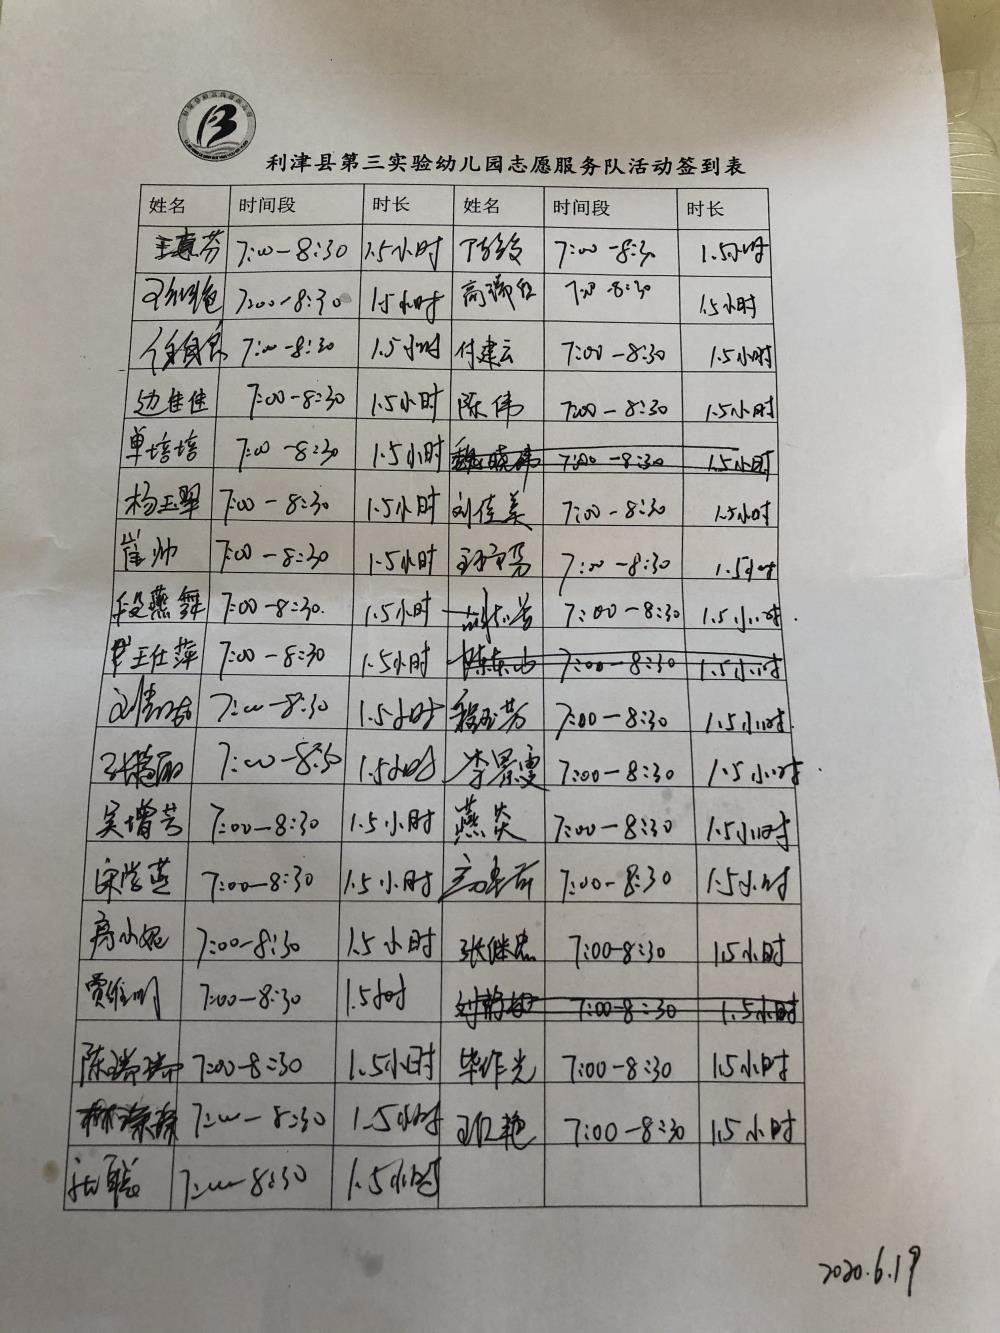 利津县第三实验幼儿园志愿服务队活动签到表
姓名 时间段 时长 姓名 时间段 时长
7:00-8:30 1.5小时 7:00-8:30 1.5小时
7:00-8:30 1.5小时 高瑞红 7:00 8:30 1.5小时
7:00-8:30 1.5小时 付建云 7:00-8:30 1.5小时
边佳佳 7:00-8:30 1.5小时 陈伟 7:00-8:30 1.5小时
单培培 7:00-8:30 1.5小时 魏晓伟 7:00-8:30 1.5小时
杨玉翠 7:00-8:30 1.5小时 刘佳美 7:00-8:30 1.5小时
崔帅 7:00-8:30 1.5小时 7:00-8:30 1.5小时
段燕舞 7:00-8:30. 1.5小时 7:00-8:30 1.5小时.
王仕萍 7:00-8:30 1.5小时 7:00-8:30 1.5小时
7:00-8:30 1.5小时 程玉芳 7:00-8:30 1.5小时.
7:00-8:30 1.5小时 7:00-8:30 1.5小时.
吴增芳 7:00-8:30 1.5小时 燕炎 7:00-8:30 1.5小时
宋学燕 7:00-8:30 1.5小时 7:00-8:30 1.5小时
高小妮 7:00-8:30 1.5小时 张继忠 7:00-8:30 1.5小时
贾维明 7:00-8:30 1.5小时 刘静敏 7:00-8:30 1.5小时
陈瑞瑞 7:00-8:30 1.5小时 毕作光 7:00-8:30 1.5小时
7:00-8:30 1.5小时 王红艳 7:00-8:30 1.5小时
7:00-8:30 1.5小时
2020.6.19